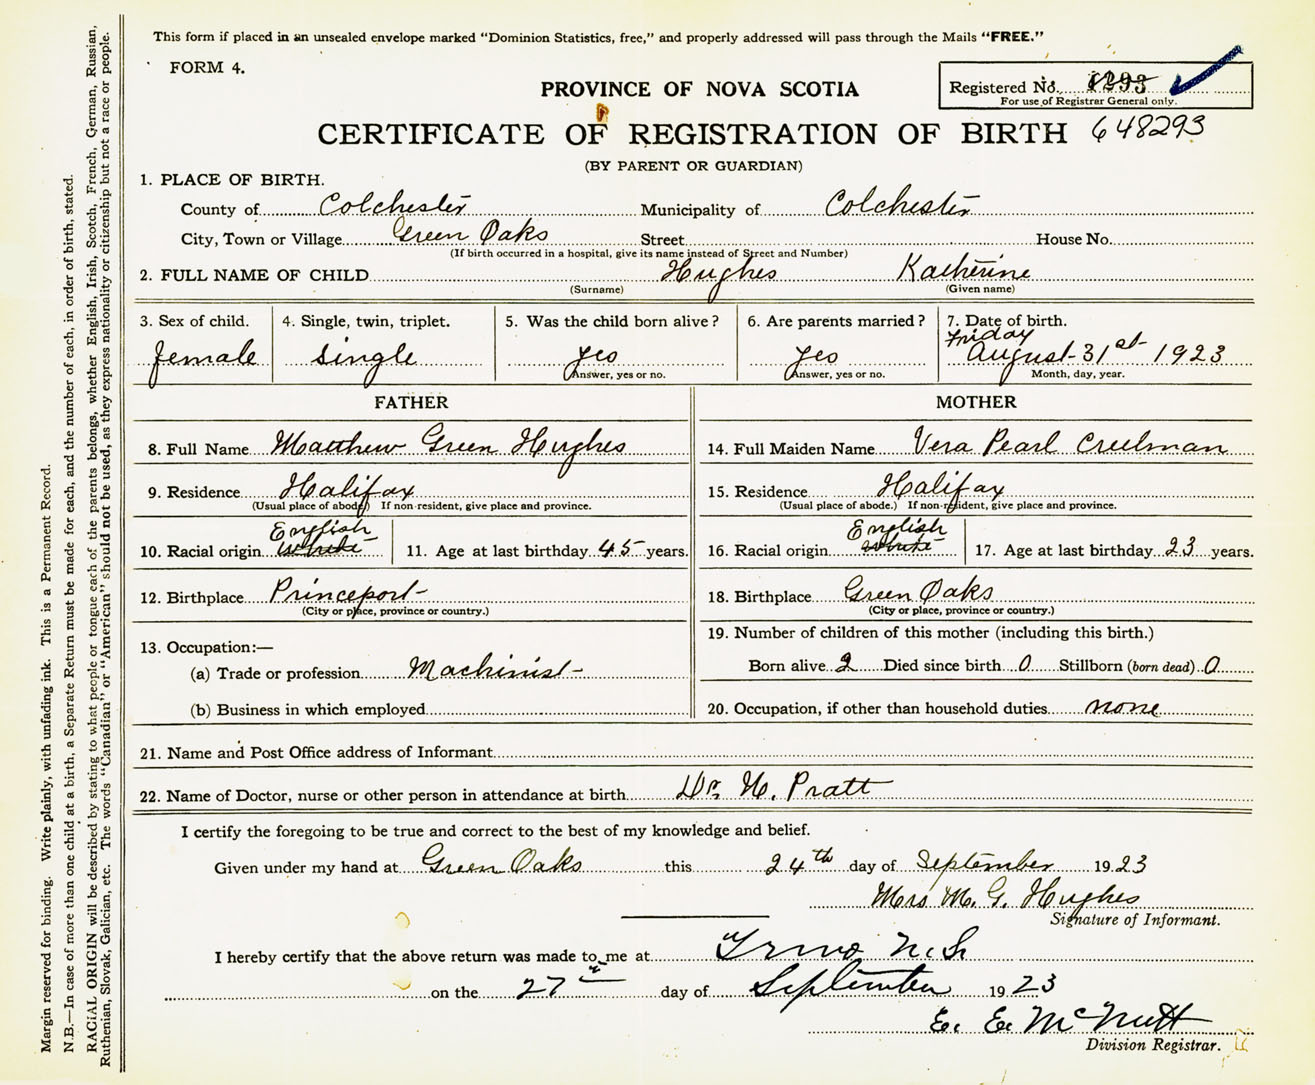 This form if placed in an unsealed envelope marked “Dominion Statistics, free,” and properly addressed will pass through the Mails “FREE.”
FORM 4.
PROVINCE OF NOVA SCOTIA
Registered No. 1293
For use of Registrar General only.
CERTIFICATE OF REGISTRATION OF BIRTH 648293
(BY PARENT OR GUARDIAN)
1. PLACE OF BIRTH.
County of Colchester Municipality of Colchester
City, Town or Village Green Oaks Street House No.
(If birth occurred in a hospital, give its name instead of Street and Number)
2. FULL NAME OF CHILD Hughes Katherine
(Surname) (Given name)
3. Sex of child. 4. Single, twin, triplet. 5. Was the child born alive? 6. Are parents married? 7. Date of birth.
Friday
female single yes yes August 31st 1923
Answer, yes or no. Answer, yes or no. Month, day, year.
FATHER MOTHER
8. Full Name Matthew Green Hughes 14. Full Maiden Name Vera Pearl Creelman
9. Residence Halifax 15. Residence Halifax
(Usual place of abode) If non-resident, give place and province. (Usual place of abode.) If non-resident, give place and province.
English English
10. Racial origin White 11. Age at last birthday 45 years. 16. Racial origin White 17. Age at last birthday 23 years.
12. Birthplace Princeport 18. Birthplace Green Oaks
(City or place, province or country.) (City or place, province or country.)
13. Occupation:— 19. Number of children of this mother (including this birth.)
(a) Trade or profession Machinist Born alive 2 Died since birth 0 Stillborn (born dead) 0
(b) Business in which employed 20. Occupation, if other than household duties none
21. Name and Post Office address of Informant
22. Name of Doctor, nurse or other person in attendance at birth Dr. H. Pratt
I certify the foregoing to be true and correct to the best of my knowledge and belief.
Given under my hand at Green Oaks this 24th day of September 1923
Mrs M. G. Hughes
Signature of Informant.
I hereby certify that the above return was made to me at Truro N.S.
on the 27th day of September 1923
E. E. McNutt
Division Registrar.
Margin reserved for binding. Write plainly, with unfading ink. This is a Permanent Record.
N.B.—In case of more than one child at a birth, a Separate Return must be made for each, and the number of each, in order of birth, stated.
RACIAL ORIGIN will be described by stating to what people or tongue each of the parents belongs, whether English, Irish, Scotch, French, German, Russian,
Ruthenian, Slovak, Galician, etc. The words “Canadian” or “American” should not be used, as they express nationality or citizenship but not a race or people.